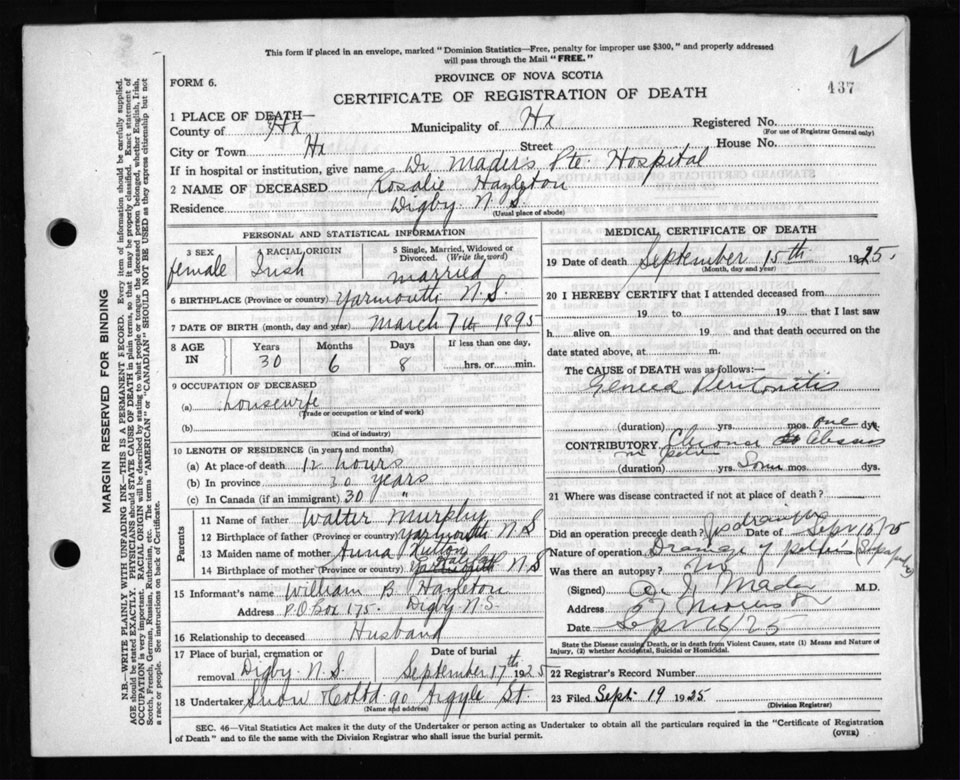 This form if placed in an envelope, marked "Dominion Statistics—Free, penalty for improper use $300," and properly addressed
will pass through the Mail "FREE."
PROVINCE OF NOVA SCOTIA
FORM 6.
437
CERTIFICATE OF REGISTRATION OF DEATH
1 PLACE OF DEATH—
County of Hx Municipality of Hx Registered No.
(For use of Registrar General only)
City or Town Hx Street House No.
If in hospital or institution, give name Dr Mader's Pte. Hospital
2 NAME OF DECEASED Rosalie Hazleton
Residence Digby N.S.
(Usual place of abode)
PERSONAL AND STATISTICAL INFORMATION
3 SEX female
4 RACIAL ORIGIN Irish
5 Single, Married, Widowed or Divorced. (Write the word) married
6 BIRTHPLACE (Province or country) Yarmouth N.S.
7 DATE OF BIRTH (month, day and year) March 7th 1895
8 AGE IN
Years Months Days If less than one day,
30 6 8 hrs. or min.
9 OCCUPATION OF DECEASED
(a) housewife
(Trade or occupation or kind of work)
(b)
(Kind of industry)
10 LENGTH OF RESIDENCE (in years and months)
(a) At place of death 12 hours
(b) In province 30 years
(c) In Canada (if an immigrant) 30 "
Parents
11 Name of father Walter Murphy
12 Birthplace of father (Province or country) Yarmouth N S
13 Maiden name of mother Anna
14 Birthplace of mother (Province or country) Yarmouth N S
15 Informant's name William B. Hazleton
Address P.O. Box 175. Digby N.S.
16 Relationship to deceased Husband
17 Place of burial, cremation or removal Digby N.S. Date of burial September 17th 1925
18 Undertaker Snow & Co Ltd 90 Argyle St.
(Name and address)
MEDICAL CERTIFICATE OF DEATH
19 Date of death September 15th 1925.
(Month, day and year)
20 I HEREBY CERTIFY that I attended deceased from
19 to 19 that I last saw
h alive on 19 and that death occurred on the
date stated above, at m.
The CAUSE OF DEATH was as follows:—
Peritonitis
(duration) yrs. mos. one dys.
CONTRIBUTORY Abscess
in pelvis
(duration) yrs. Some mos. dys.
21 Where was disease contracted if not at place of death?
Did an operation precede death? Date of Sept 15/25
Nature of operation Drainage of pelvis
Was there an autopsy? No
(Signed) Mader M.D.
Address
Date Sept 16/25
State the Disease causing Death, or in death from Violent Causes, state (1) Means and Nature of
Injury, (2) whether Accidental, Suicidal or Homicidal.
22 Registrar's Record Number
23 Filed Sept. 19 1925
(Division Registrar)
SEC. 46—Vital Statistics Act makes it the duty of the Undertaker or person acting as Undertaker to obtain all the particulars required in the "Certificate of Registration
of Death" and to file the same with the Division Registrar who shall issue the burial permit.
(OVER)
MARGIN RESERVED FOR BINDING
N.B.—WRITE PLAINLY WITH UNFADING INK—THIS IS A PERMANENT RECORD. Every item of information should be carefully supplied.
AGE should be stated EXACTLY. PHYSICIANS should STATE CAUSE OF DEATH in plain terms, so that it may be properly classified. Exact statement of
OCCUPATION is very important. RACIAL ORIGIN will be described by stating to what people or tongue the deceased person belonged, whether English, Irish,
Scotch, French, German, Russian, Ruthenian, etc. The terms "AMERICAN" or "CANADIAN" SHOULD NOT BE USED as they express citizenship but not
a race or people. See instructions on back of Certificate.